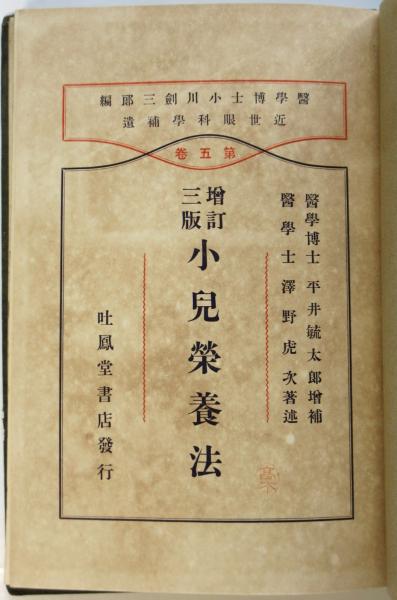 醫學博士小川劍三郎編
近世眼科學補遺
第五卷
醫學博士 平井毓太郎增補
醫學士 澤野虎次著述
增訂
三版
小兒榮養法
吐鳳堂書店發行